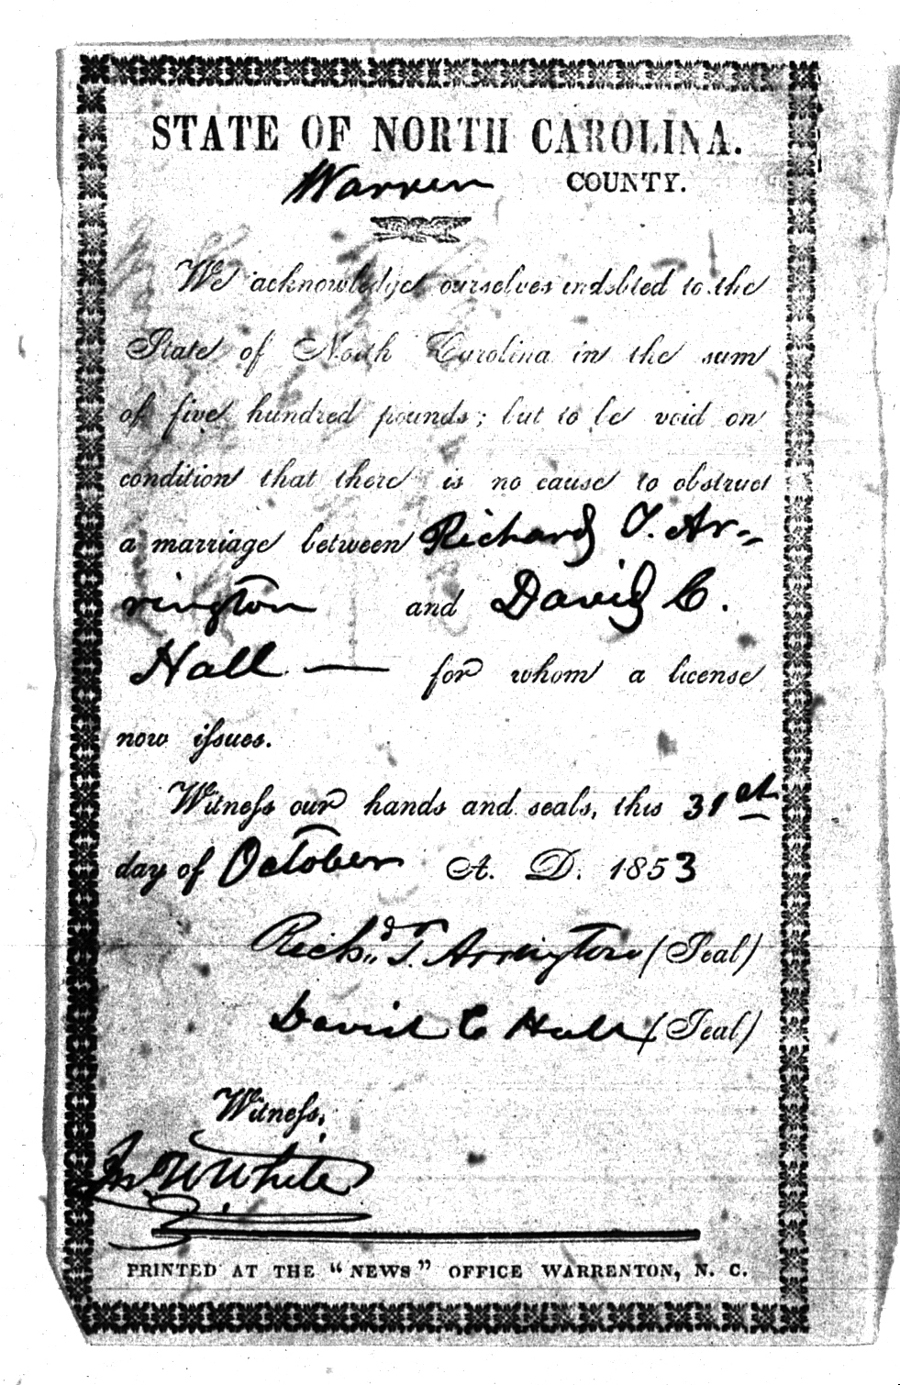 STATE OF NORTH CAROLINA.
Warren COUNTY.
We acknowledge ourselves indebted to the
State of North Carolina in the sum
of five hundred pounds; but to be void on
condition that there is no cause to obstruct
a marriage between Richard T. Ar-
rington and David C.
Hall — for whom a license
now issues.
Witness our hands and seals, this 31st
day of October A. D. 1853
Richd T. Arrington (Seal)
David C Hall (Seal)
Witness,
Jn W White
PRINTED AT THE "NEWS" OFFICE WARRENTON, N. C.